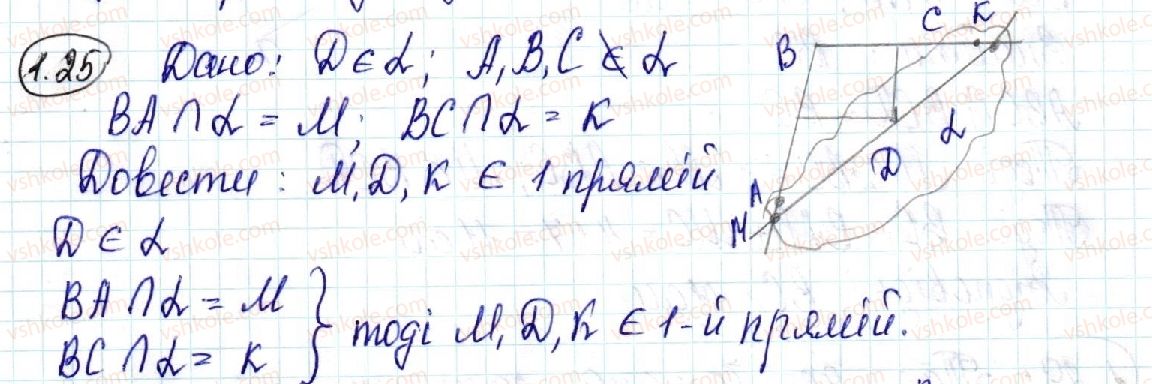 1.25 Дано: D ∈ α; A, B, C ∉ α
BA ∩ α = M; BC ∩ α = K
Довести: M, D, K ∈ 1 прямій
D ∈ α
BA ∩ α = M
BC ∩ α = K } тоді M, D, K ∈ 1-й прямій.
B C K
α
D
A
M